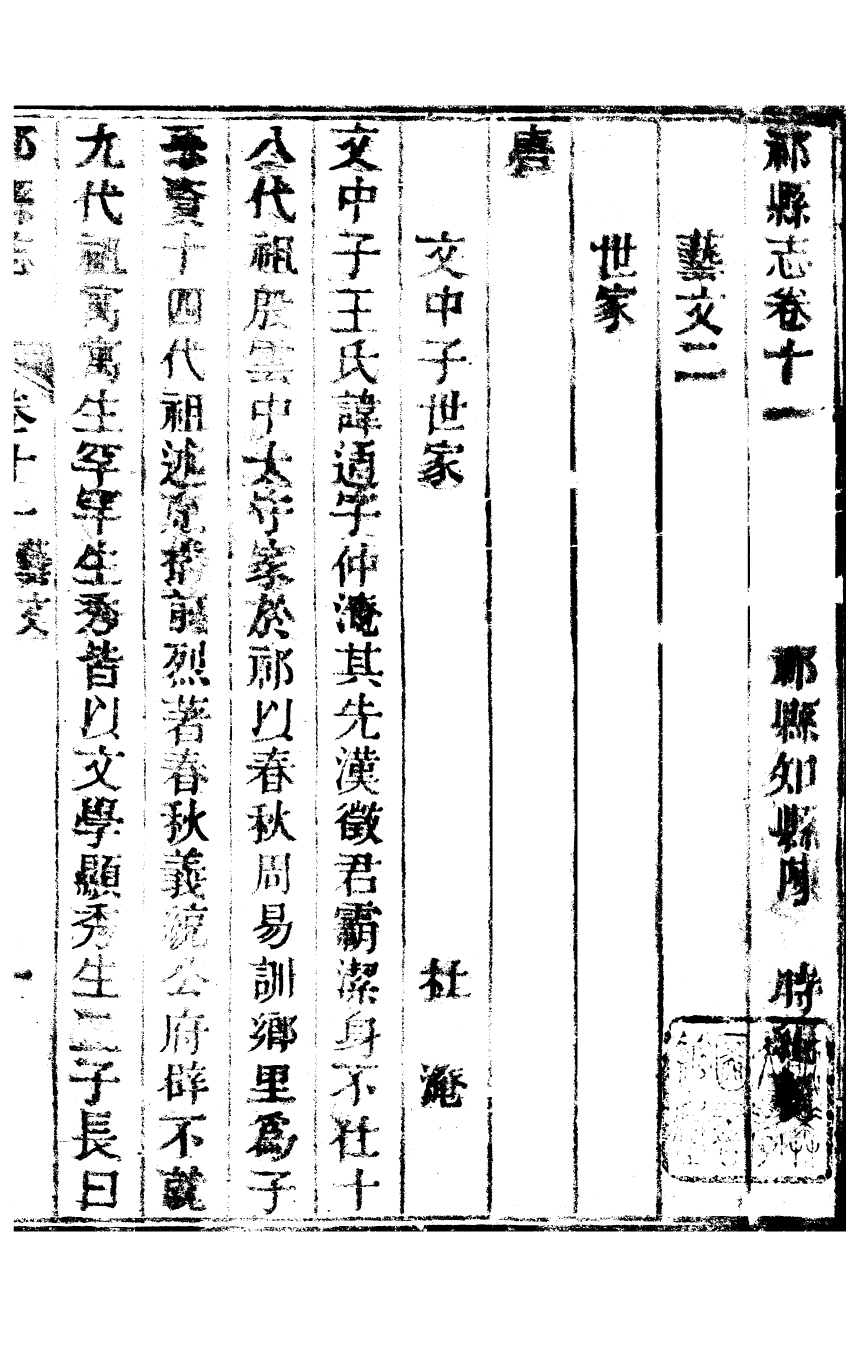 祁縣志卷十一
祁縣知縣陳 時
藝文二
世家
唐
文中子世家
杜 淹
文中子王氏諱通字仲淹其先漢徵君霸潔身不仕十
八代祖殷雲中太守家於祁以春秋周易訓鄉里為子
孫資十四代祖述克播前烈著春秋義統公府辟不就
九代祖寓寓生罕罕生秀皆以文學顯秀生二子長曰
祁縣志
卷十一 藝文
一